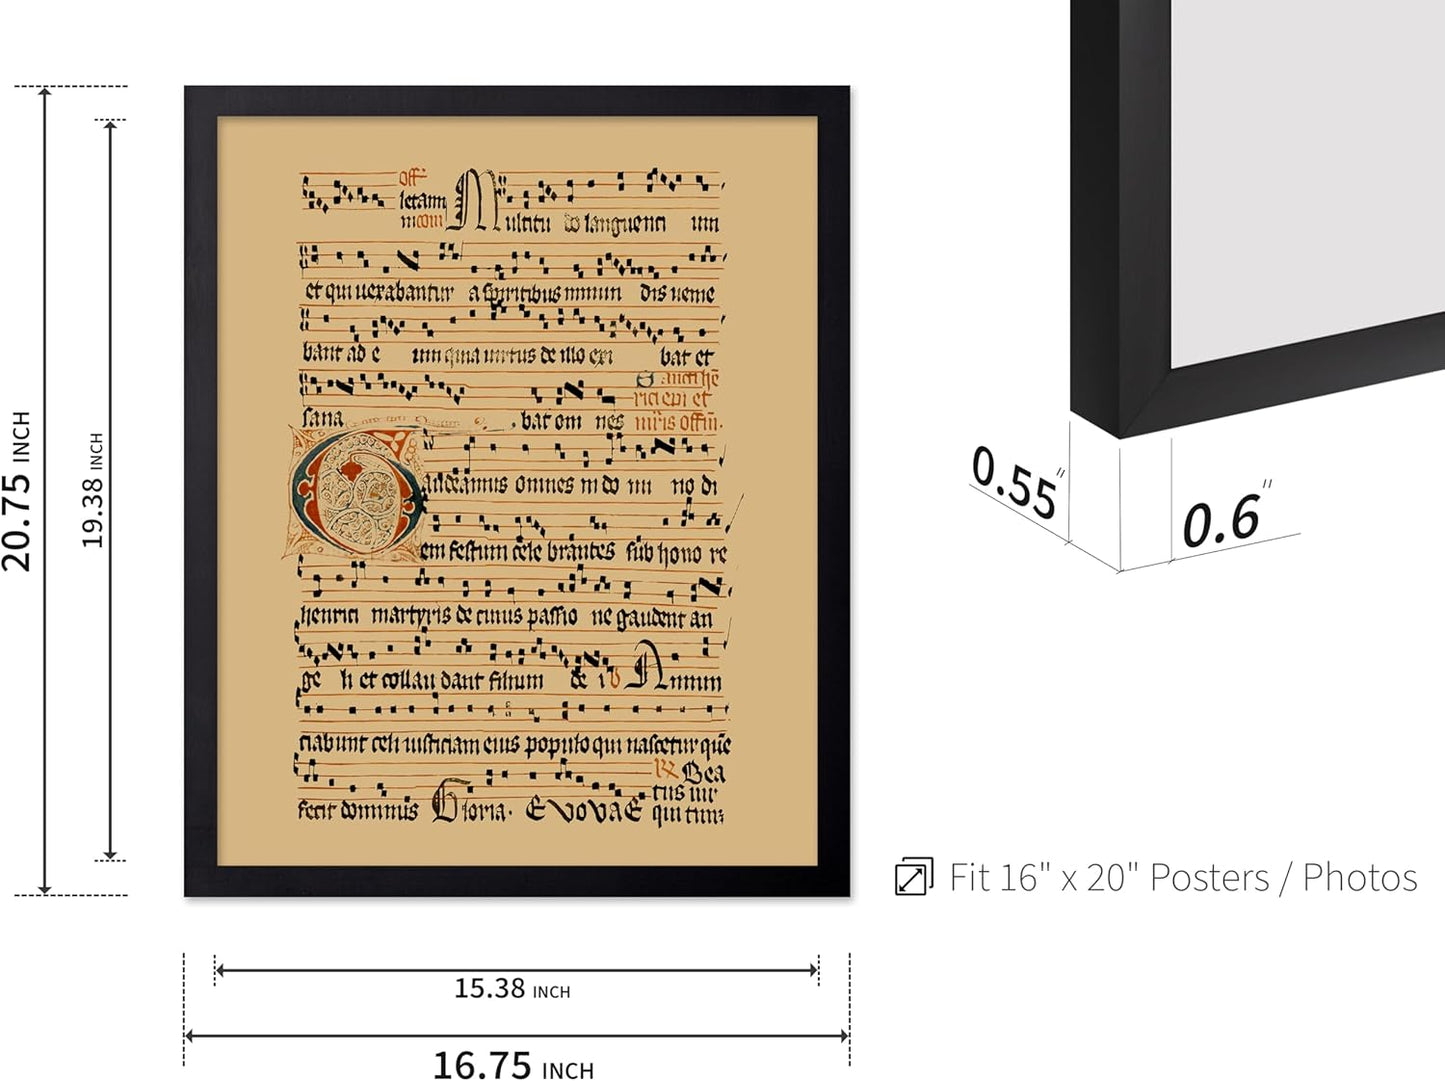 20.75 INCH
19.38 INCH
off
letam
M ultitu do languenti um
et qui uexabantur a spiritibus inmun dis uenie
bant ad e um quia uirtus de illo exi bat et
sana bat om nes
Gaudeamus omnes in do mi no di
em festum cele brantes sub hono re
henrici martyris de cuius passio ne gaudent an
ge li et collau dant filium de i
Annun
ciabunt celi iusticiam eius populo qui nascetur que
Bea
fecit dominus Gloria. EVOVAE
tus uir
qui
15.38 INCH
16.75 INCH
0.55"
0.6"
Fit 16" x 20" Posters / Photos